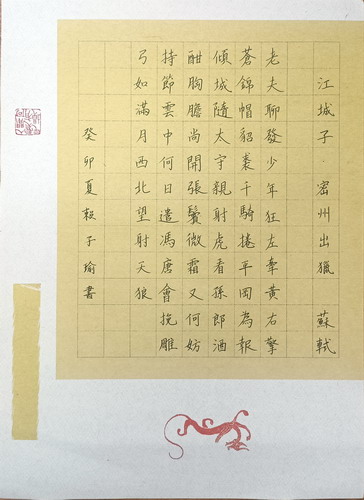 江城子·密州出獵 蘇軾
老夫聊發少年狂左牽黃右擎
蒼錦帽貂裘千騎捲平岡為報
傾城隨太守親射虎看孫郎酒
酣胸膽尚開張鬢微霜又何妨
持節雲中何日遣馮唐會挽雕
弓如滿月西北望射天狼
癸卯夏賴子瑜書